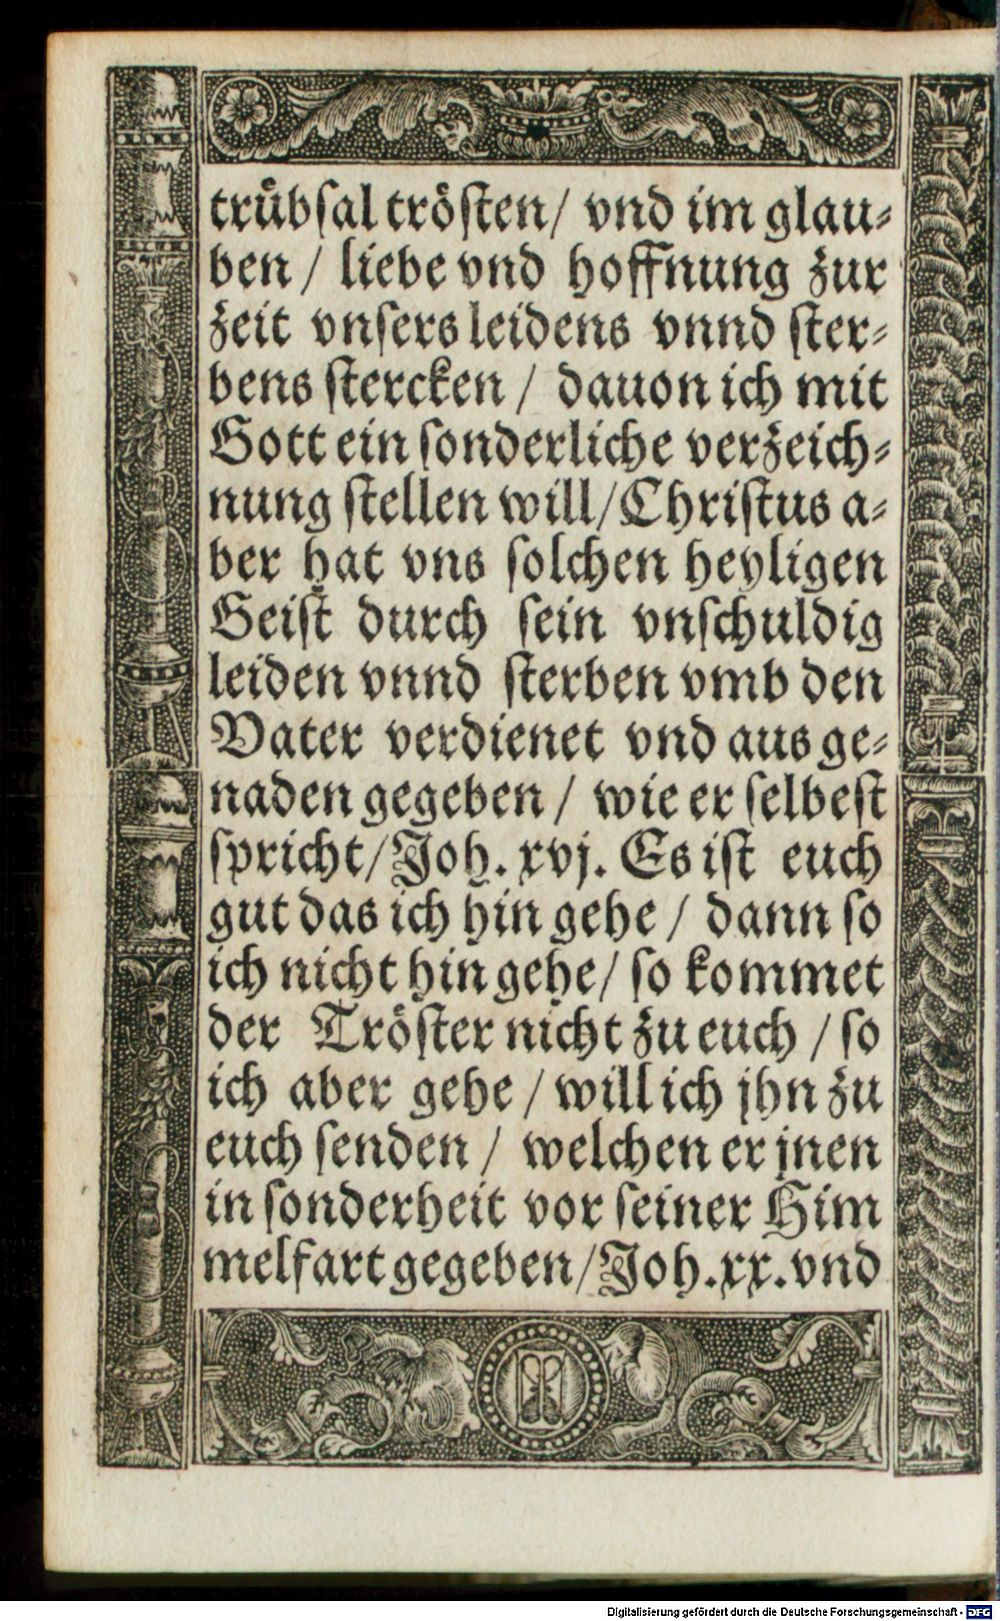 trůbſal troͤſten/ vnd im glau⸗
ben / liebe vnd hoffnung zur
zeit vnſers leidens vnnd ſter⸗
bens ſtercken / dauon ich mit
Gott ein ſonderliche verzeich⸗
nung ſtellen will/Chriſtus a⸗
ber hat vns ſolchen heyligen
Geiſt durch ſein vnſchuldig
leiden vnnd ſterben vmb den
Vater verdienet vnd aus ge⸗
naden gegeben / wie er ſelbeſt
ſpricht/Joh. xvj. Es iſt euch
gut das ich hin gehe / dann ſo
ich nicht hin gehe/ ſo kommet
der Troͤſter nicht zu euch / ſo
ich aber gehe / will ich jhn zu
euch ſenden / welchen er jnen
in ſonderheit vor ſeiner Him
melfart gegeben/Joh.xx.vnd
Digitalisierung gefördert durch die Deutsche Forschungsgemeinschaft - DFG